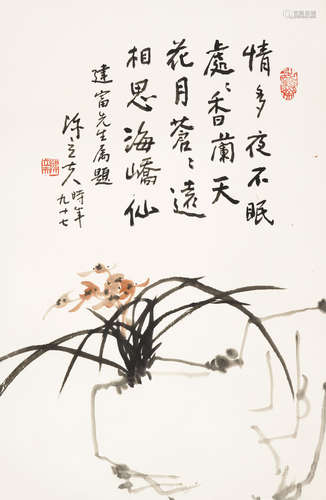 情多夜不眠
處々香蘭天
花月蒼々遠
相思海嶠仙
建富先生屬題
陳立夫時年
九十七